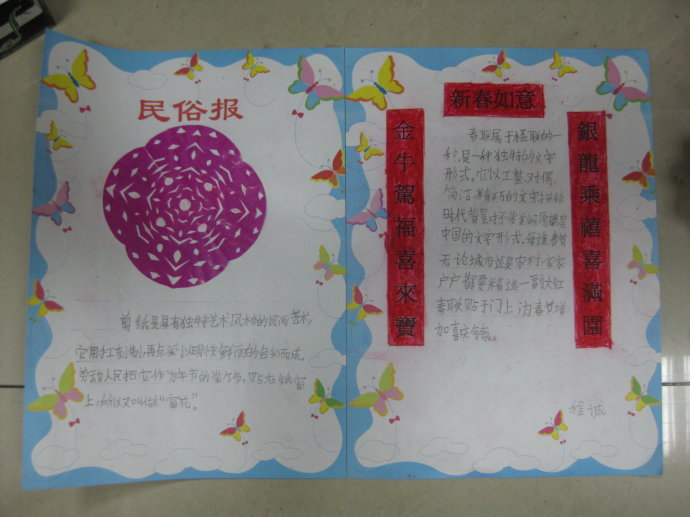 民俗报
剪纸是具有独特艺术风格的民间艺术,
它用手工刻制,再点染以明快鲜丽的色彩而成。
劳动人民把它作为年节的装饰,贴在纸窗
上,所以又叫做“窗花”。
新春如意
金牛駕福喜來寶
銀龍乘禧喜滿園
春联属于楹联的一
种,是一种独特的文学
形式。它以工整、对偶、
简洁、精巧的文字描绘
时代背景,抒发美好愿望,是
中国的文字形式。每逢春节
无论城市还是农村,家家
户户都要精选一副大红
春联贴于门上,为春节增
加喜庆气氛。
程诚